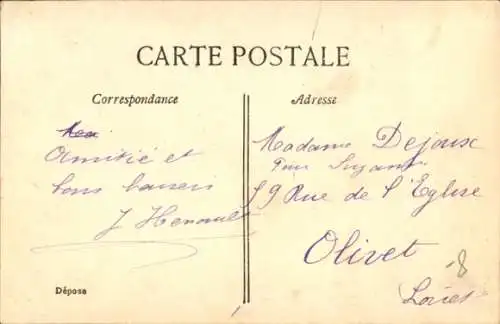 CARTE POSTALE
Correspondance
Adresse
Amitié et
bons baisers
J Henault
Madame Dejoux
Pour Suzanne
59 Rue de l'Eglise
Olivet
Loiret
Déposé